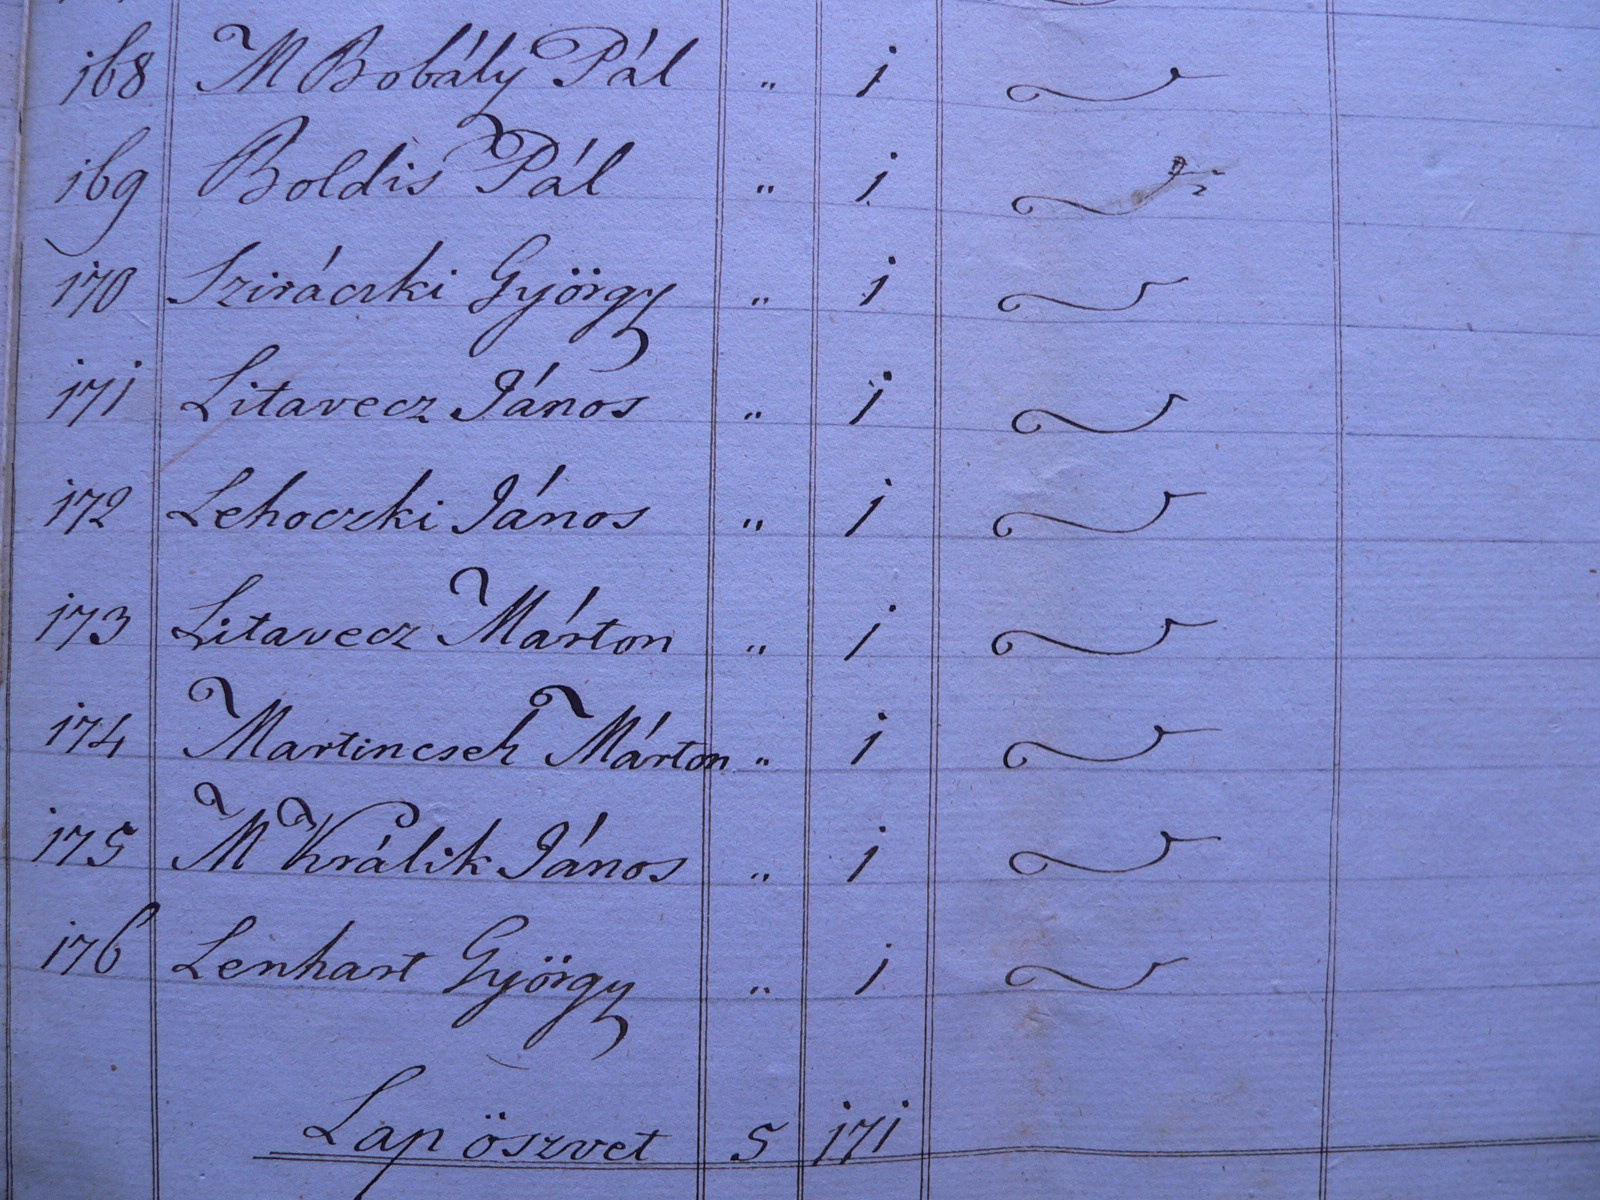 168 M Bobály Pál " 1
169 Boldis Pál " 1
170 Sziráczki György " 1
171 Litavecz János " 1
172 Lehoczki János " 1
173 Litavecz Márton " 1
174 Martincsek Márton " 1
175 M Králik János " 1
176 Lenhart György " 1
Lap öszvet 5 171